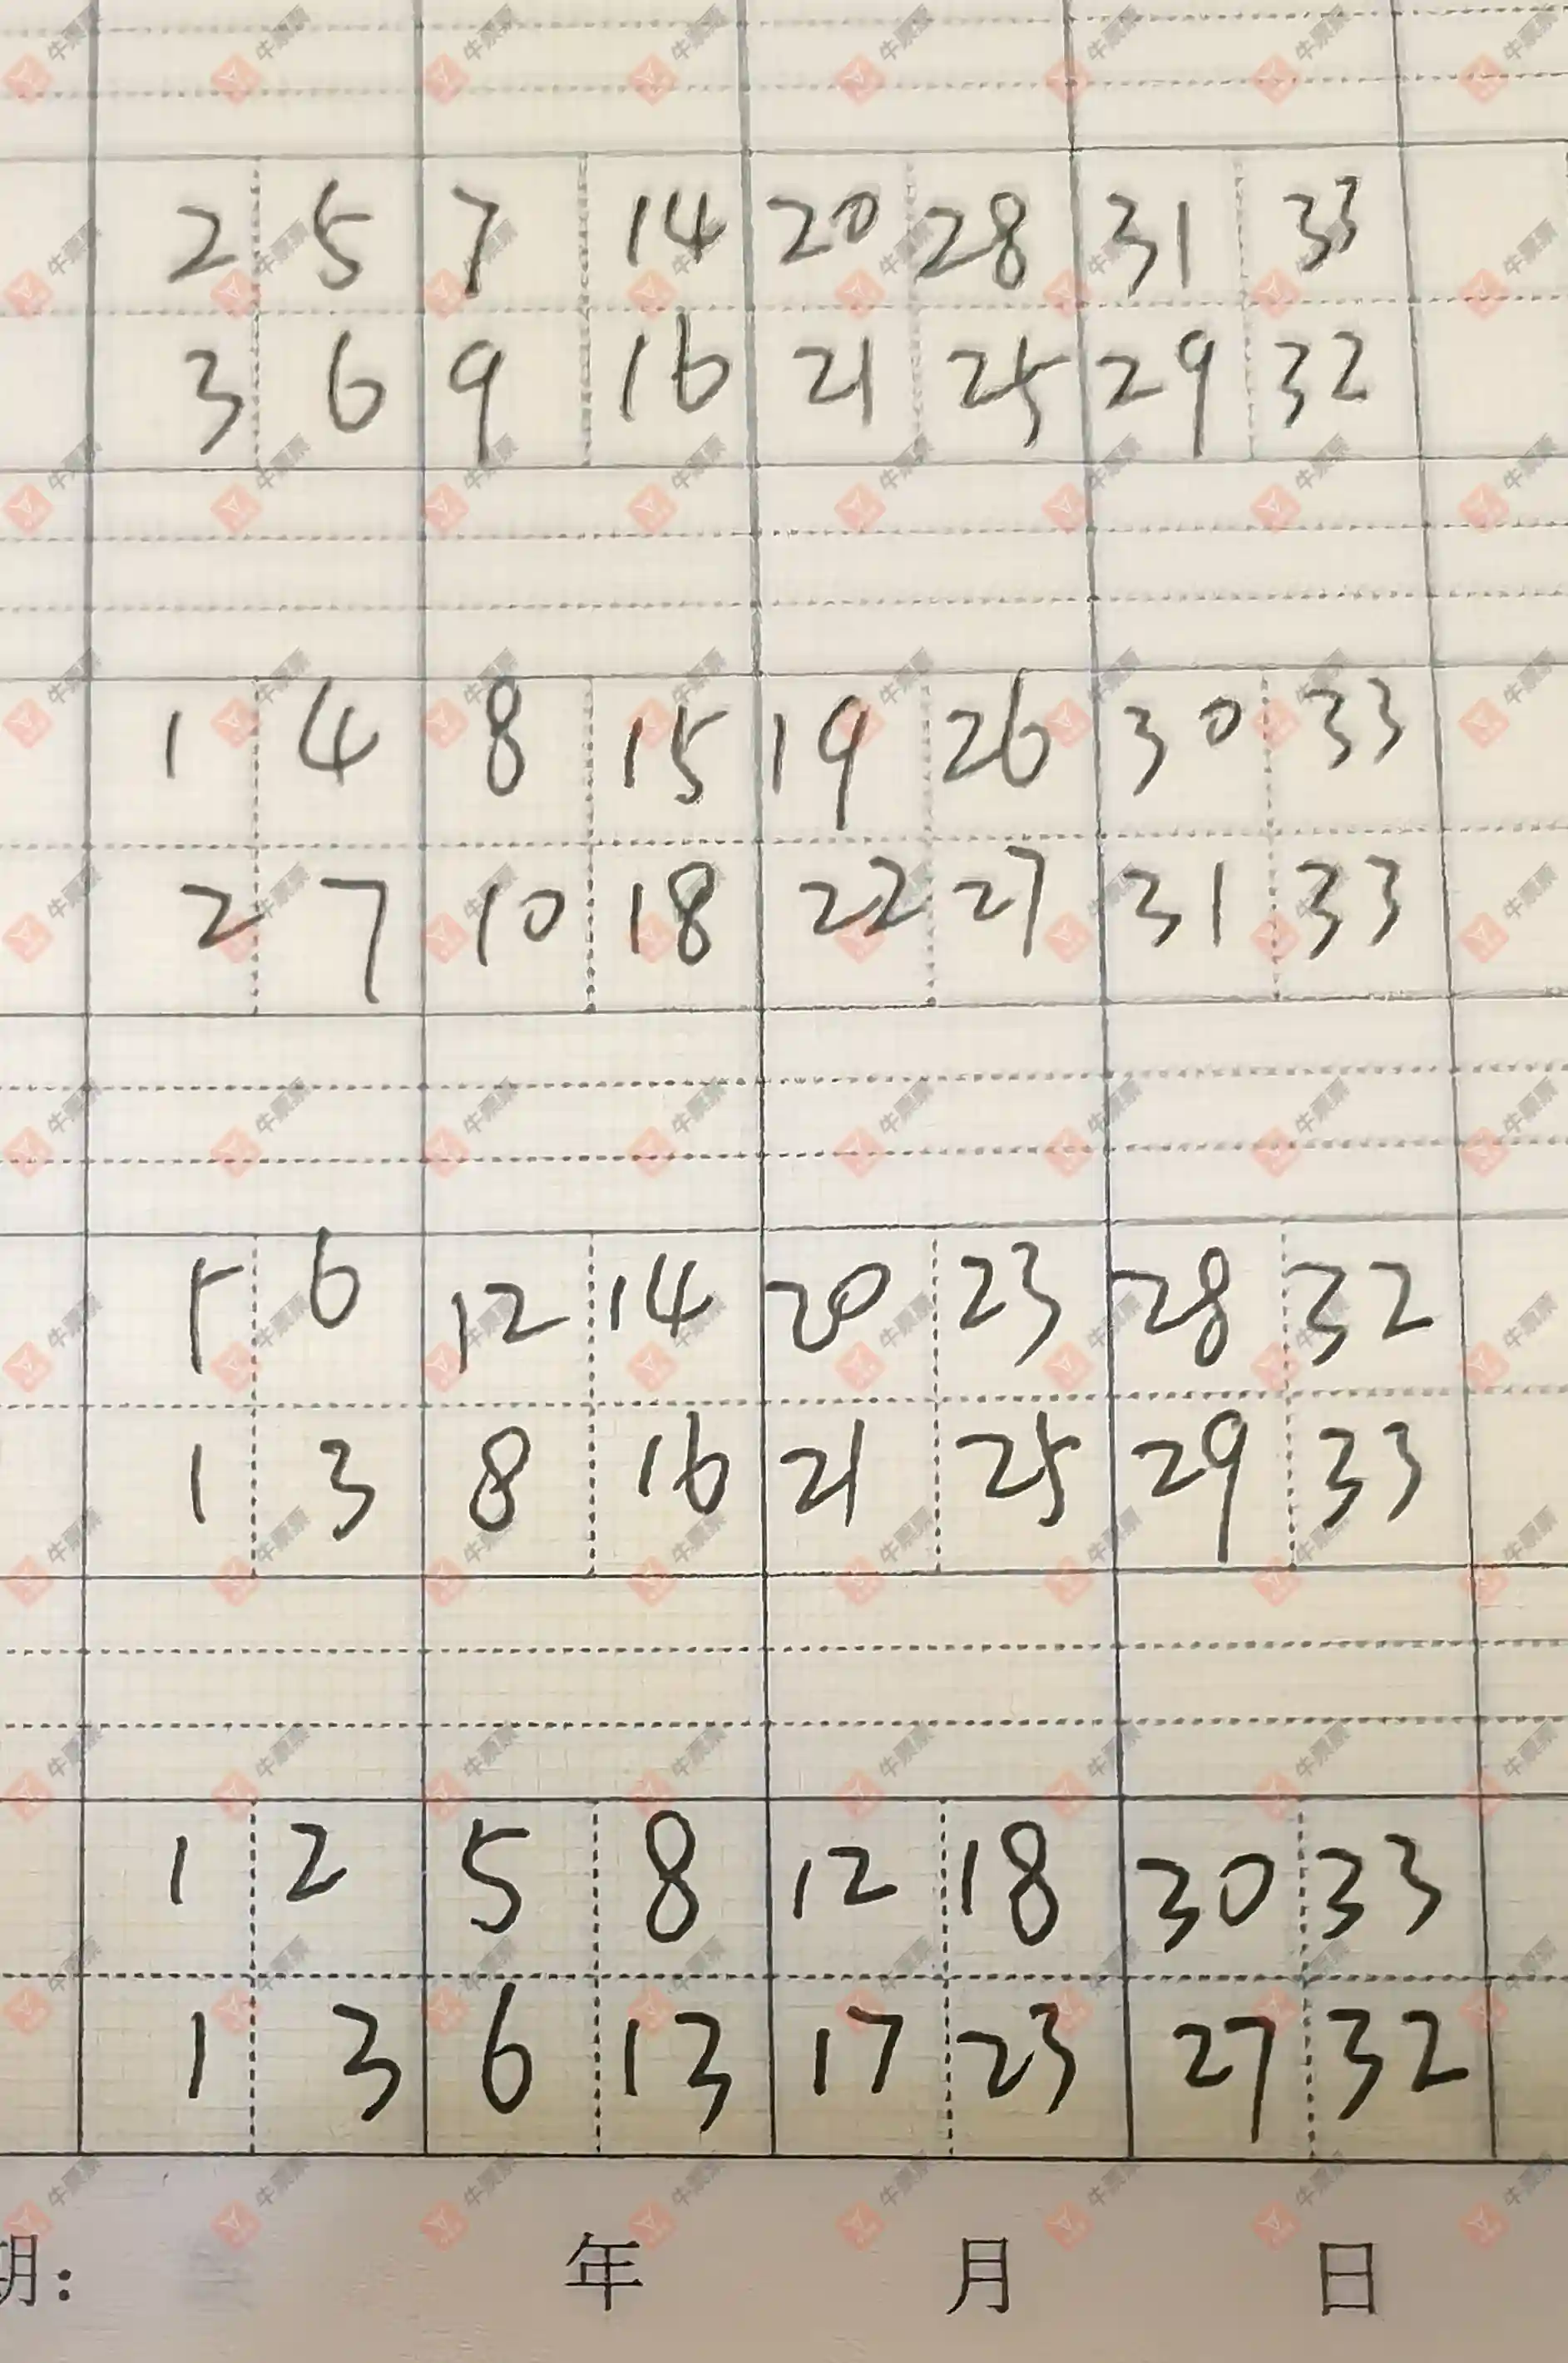 2 5 7 14 20 28 31 33
3 6 9 16 21 25 29 32
1 4 8 15 19 26 30 33
2 7 10 18 22 27 31 33
6 12 14 20 23 28 32
1 3 8 16 21 25 29 33
1 2 5 8 12 18 30 33
1 3 6 13 17 23 27 32
期: 年 月 日